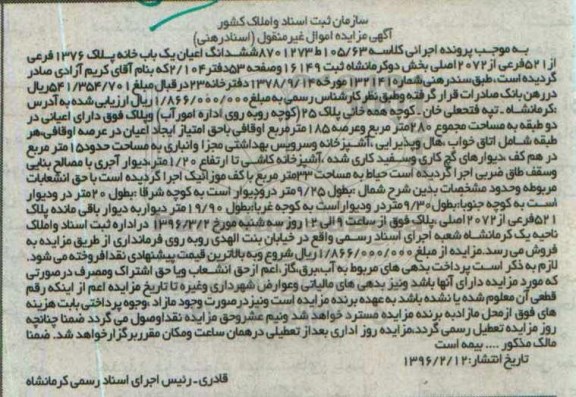 سازمان ثبت اسناد و املاک کشور
آگهی مزایده اموال غیرمنقول (اسناد رهنی)
به موجب پرونده اجرائی کلاسه ۱۰۵/۶۳ط۸۷۰۱۲۷۳ ششدانگ اعیان یک باب خانه پلاک ۱۳۷۶ فرعی
از ۵۲۱ فرعی از ۲۰۷۲ اصلی بخش دو کرمانشاه ثبت ۱۶۱۴۹ و صفحه ۵۳ دفتر ۲/۱۰۴ که بنام آقای کریم آزادی صادر
گردیده است، طبق سند رهنی شماره ۱۳۲۱۴۱ مورخه ۱۳۷۸/۹/۱۴ دفترخانه ۲۳ در قبال مبلغ ۵۴۱/۳۵۴/۷۰۱ ریال
در رهن بانک صادرات قرار گرفته و طبق نظر کارشناس رسمی به مبلغ ۱/۸۶۶/۰۰۰/۰۰۰ ریال ارزیابی شده به آدرس
:کرمانشاه ـ تپه فتحعلی خان ـ کوچه همه خانی پلاک ۲۵ (کوچه روبه روی اداره امور آب) وپلاک فوق دارای اعیانی در
دو طبقه به مساحت مجموع ۲۸۰ متر مربع وعرصه ۱۸۵ مترمربع اوقافی باحق امتیاز ایجاد اعیان در عرصه اوقافی،هر
طبقه شامل اتاق خواب ،هال وپذیرایی ،آشپزخانه وسرویس بهداشتی مجزا وانباری به مساحت حدود ۱۵ متر مربع
در هم کف ،دیوارهای گچ کاری وسفید کاری شده ،آشپزخانه کاشی تا ارتفاع ۱/۲۰ متر،دیوار آجری با مصالح بنایی
وسقف طاق ضربی اجرا گردیده است حیاط به مساحت ۳۳ متر مربع با کف موزائیک اجرا گردیده است با حق انشعابات
مربوطه وحدود مشخصات بدین شرح شمال :بطول ۹/۲۵ متر درودیوار است به کوچه شرقا :بطول ۲۰ متر در ودیوار
است به کوچه جنوبا:بطول ۹/۳۰ متر در ودیوار است به کوچه غربا:بطول ۱۹/۹۰ متر دیوار به دیوار باقی مانده پلاک
۵۲۱ فرعی از ۲۰۷۲ اصلی ،پلاک فوق از ساعت ۹ الی ۱۲ روز سه شنبه مورخ ۱۳۹۶/۳/۲ در اداره ثبت اسناد واملاک
ناحیه یک کرمانشاه شعبه اجرای اسناد رسمی واقع در خیابان بنت الهدی روبه روی فرمانداری از طریق مزایده به
فروش می رسد.مزایده از مبلغ ۱/۸۶۶/۰۰۰/۰۰۰ ریال شروع وبه بالاترین قیمت پیشنهادی نقدا فروخته می شود.
لازم به ذکر است پرداخت بدهی های مربوط به آب،برق،گاز،اعم از حق انشعاب ویا حق اشتراک ومصرف در صورتی
که مورد مزایده دارای آنها باشد ونیز بدهی های مالیاتی وعوارض شهرداری وغیره تا تاریخ مزایده اعم از اینکه رقم
قطعی آن معلوم شده یا نشده باشد به عهده برنده مزایده است ونیز در صورت وجود مازاد ،وجوه پرداختی بابت هزینه
های فوق از محل مازاد به برنده مزایده مسترد خواهد شد ونیم عشر وحق مزایده نقدا وصول می گردد ضمنا چنانچه
روز مزایده تعطیل رسمی گردد،مزایده روز اداری بعد از تعطیلی در همان ساعت ومکان مقرر برگزار خواهد شد. ضمنا
مالک مذکور .... بیمه است
تاریخ انتشار: ۱۳۹۶/۲/۱۲
قادری ـ رئیس اجرای اسناد رسمی کرمانشاه